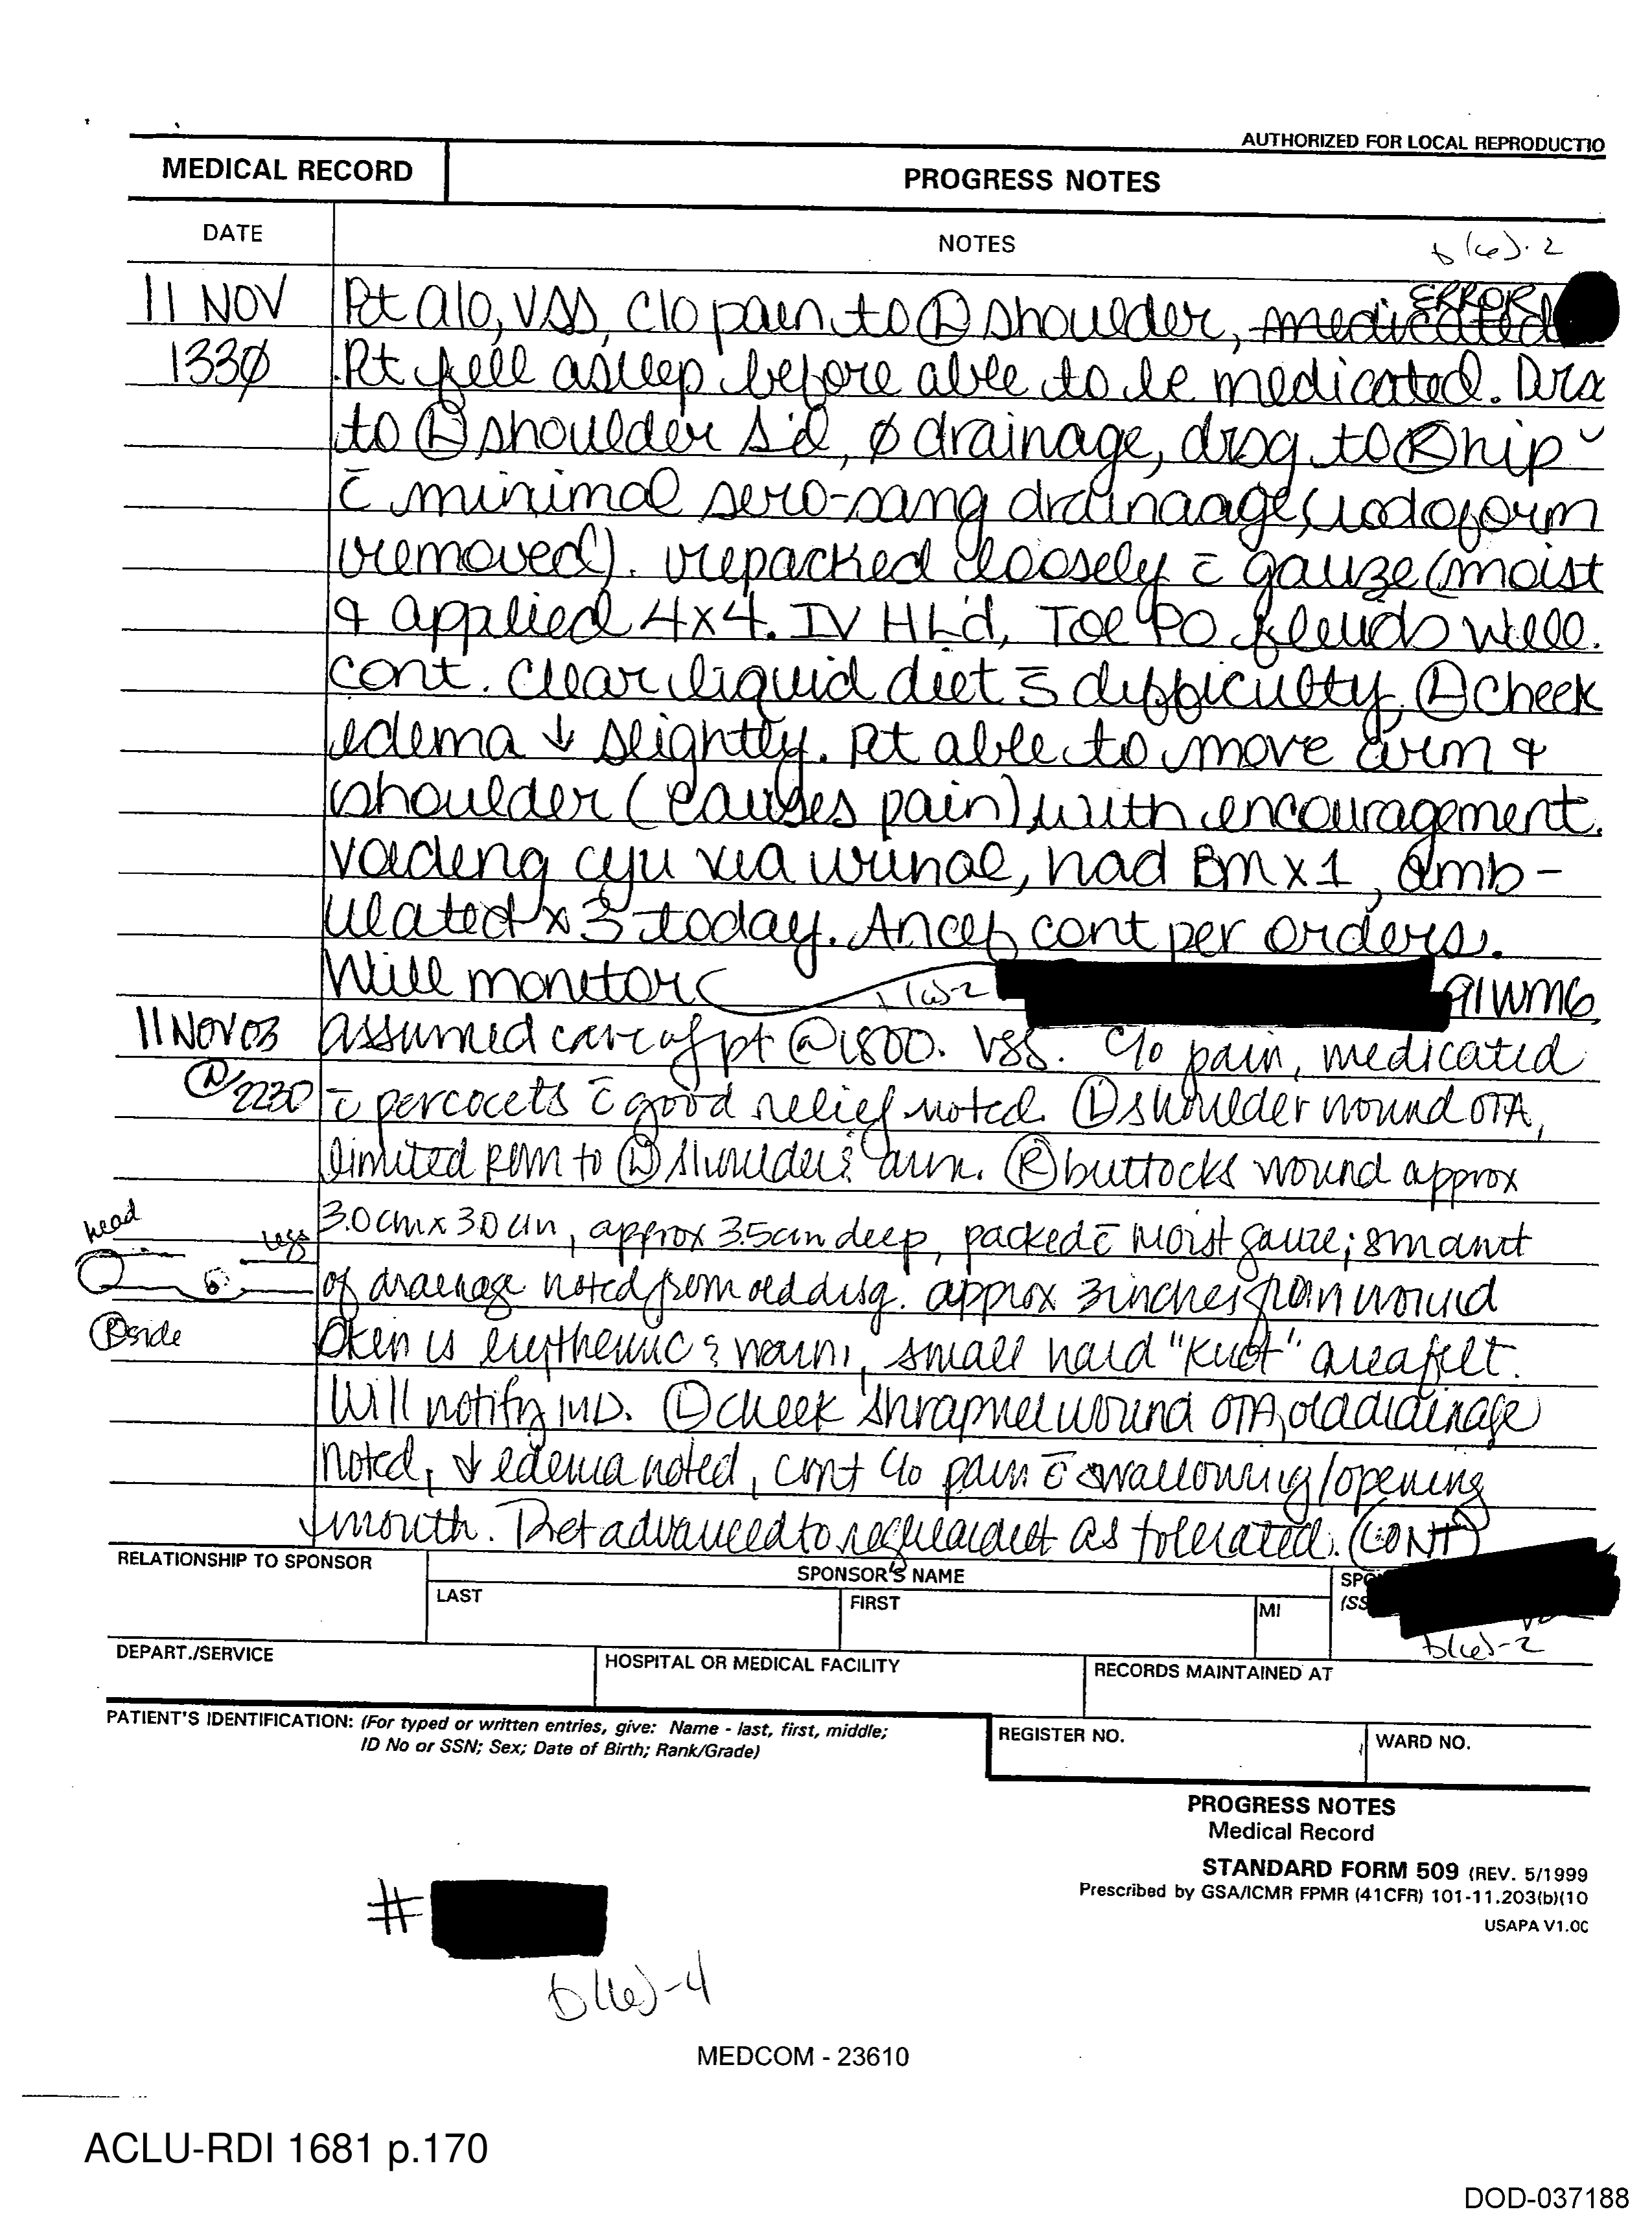 AUTHORIZED FOR LOCAL REPRODUCTIO
MEDICAL RECORD PROGRESS NOTES
DATE NOTES b(6)-2
11 NOV Pt a/o, VSS, c/o pain to (L) shoulder, medicated ERROR
1330 Pt fell asleep before able to be medicated. Drsg
to (L) shoulder Δ'd, ø drainage, drsg to (R) hip
c̄ minimal sero-sang drainaage, (iodoform
removed). repacked loosely c̄ gauze (moist
& applied 4x4. IV HL'd, Tol PO fluids well.
cont. clear liquid diet s̄ difficulty, (L) cheek
edema ↓ slightly. Pt able to move arm &
shoulder (causes pain) with encouragement.
voiding cyu via urinal, had BM x 1, amb-
ulated x 3 today. Ancef cont per orders.
Will monitor b(6)-2 91WM6
11 NOV 03 assumed care of pt @ 1800. VSS. c/o pain, medicated
@ 2230 c̄ percocets c̄ good relief noted. (L) shoulder wound OTA,
limited ROM to (L) shoulder & arm. (R) buttocks wound approx
head legs 3.0cm x 3.0cm, approx 3.5cm deep, packed c̄ moist gauze; sm amt
of drainage noted from old drsg. approx 3 inches from wound
(R) side skin is erythemic & warm, small hard "knot" area felt.
Will notify MD. (L) cheek shrapnel wound OTA, old drainage
noted, ↓ edema noted, cont c/o pain c̄ swallowing/opening
mouth. Diet advanced to regular diet as tolerated. (CONT)
RELATIONSHIP TO SPONSOR SPONSOR'S NAME SPO
LAST FIRST MI (SS
b(6)-2
DEPART./SERVICE HOSPITAL OR MEDICAL FACILITY RECORDS MAINTAINED AT
PATIENT'S IDENTIFICATION: (For typed or written entries, give: Name - last, first, middle;
ID No or SSN; Sex; Date of Birth; Rank/Grade)
REGISTER NO. WARD NO.
PROGRESS NOTES
Medical Record
STANDARD FORM 509 (REV. 5/1999
Prescribed by GSA/ICMR FPMR (41CFR) 101-11.203(b)(10
USAPA V1.00
#
b(6)-4
MEDCOM - 23610
ACLU-RDI 1681 p.170
DOD-037188